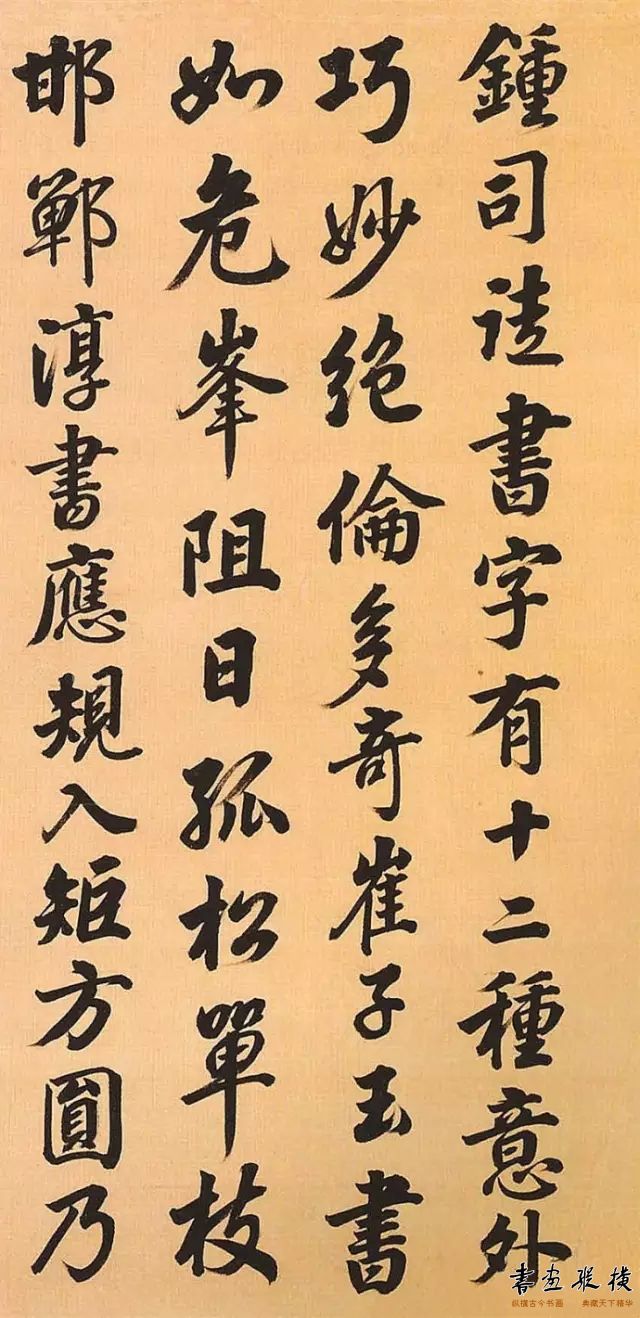 鍾司徒書字有十二種意外
巧妙絕倫多奇崔子玉書
如危峯阻日孤松單枝
邯鄲淳書應規入矩方圓乃
書画縱橫
纵横古今书画 典藏天下精华